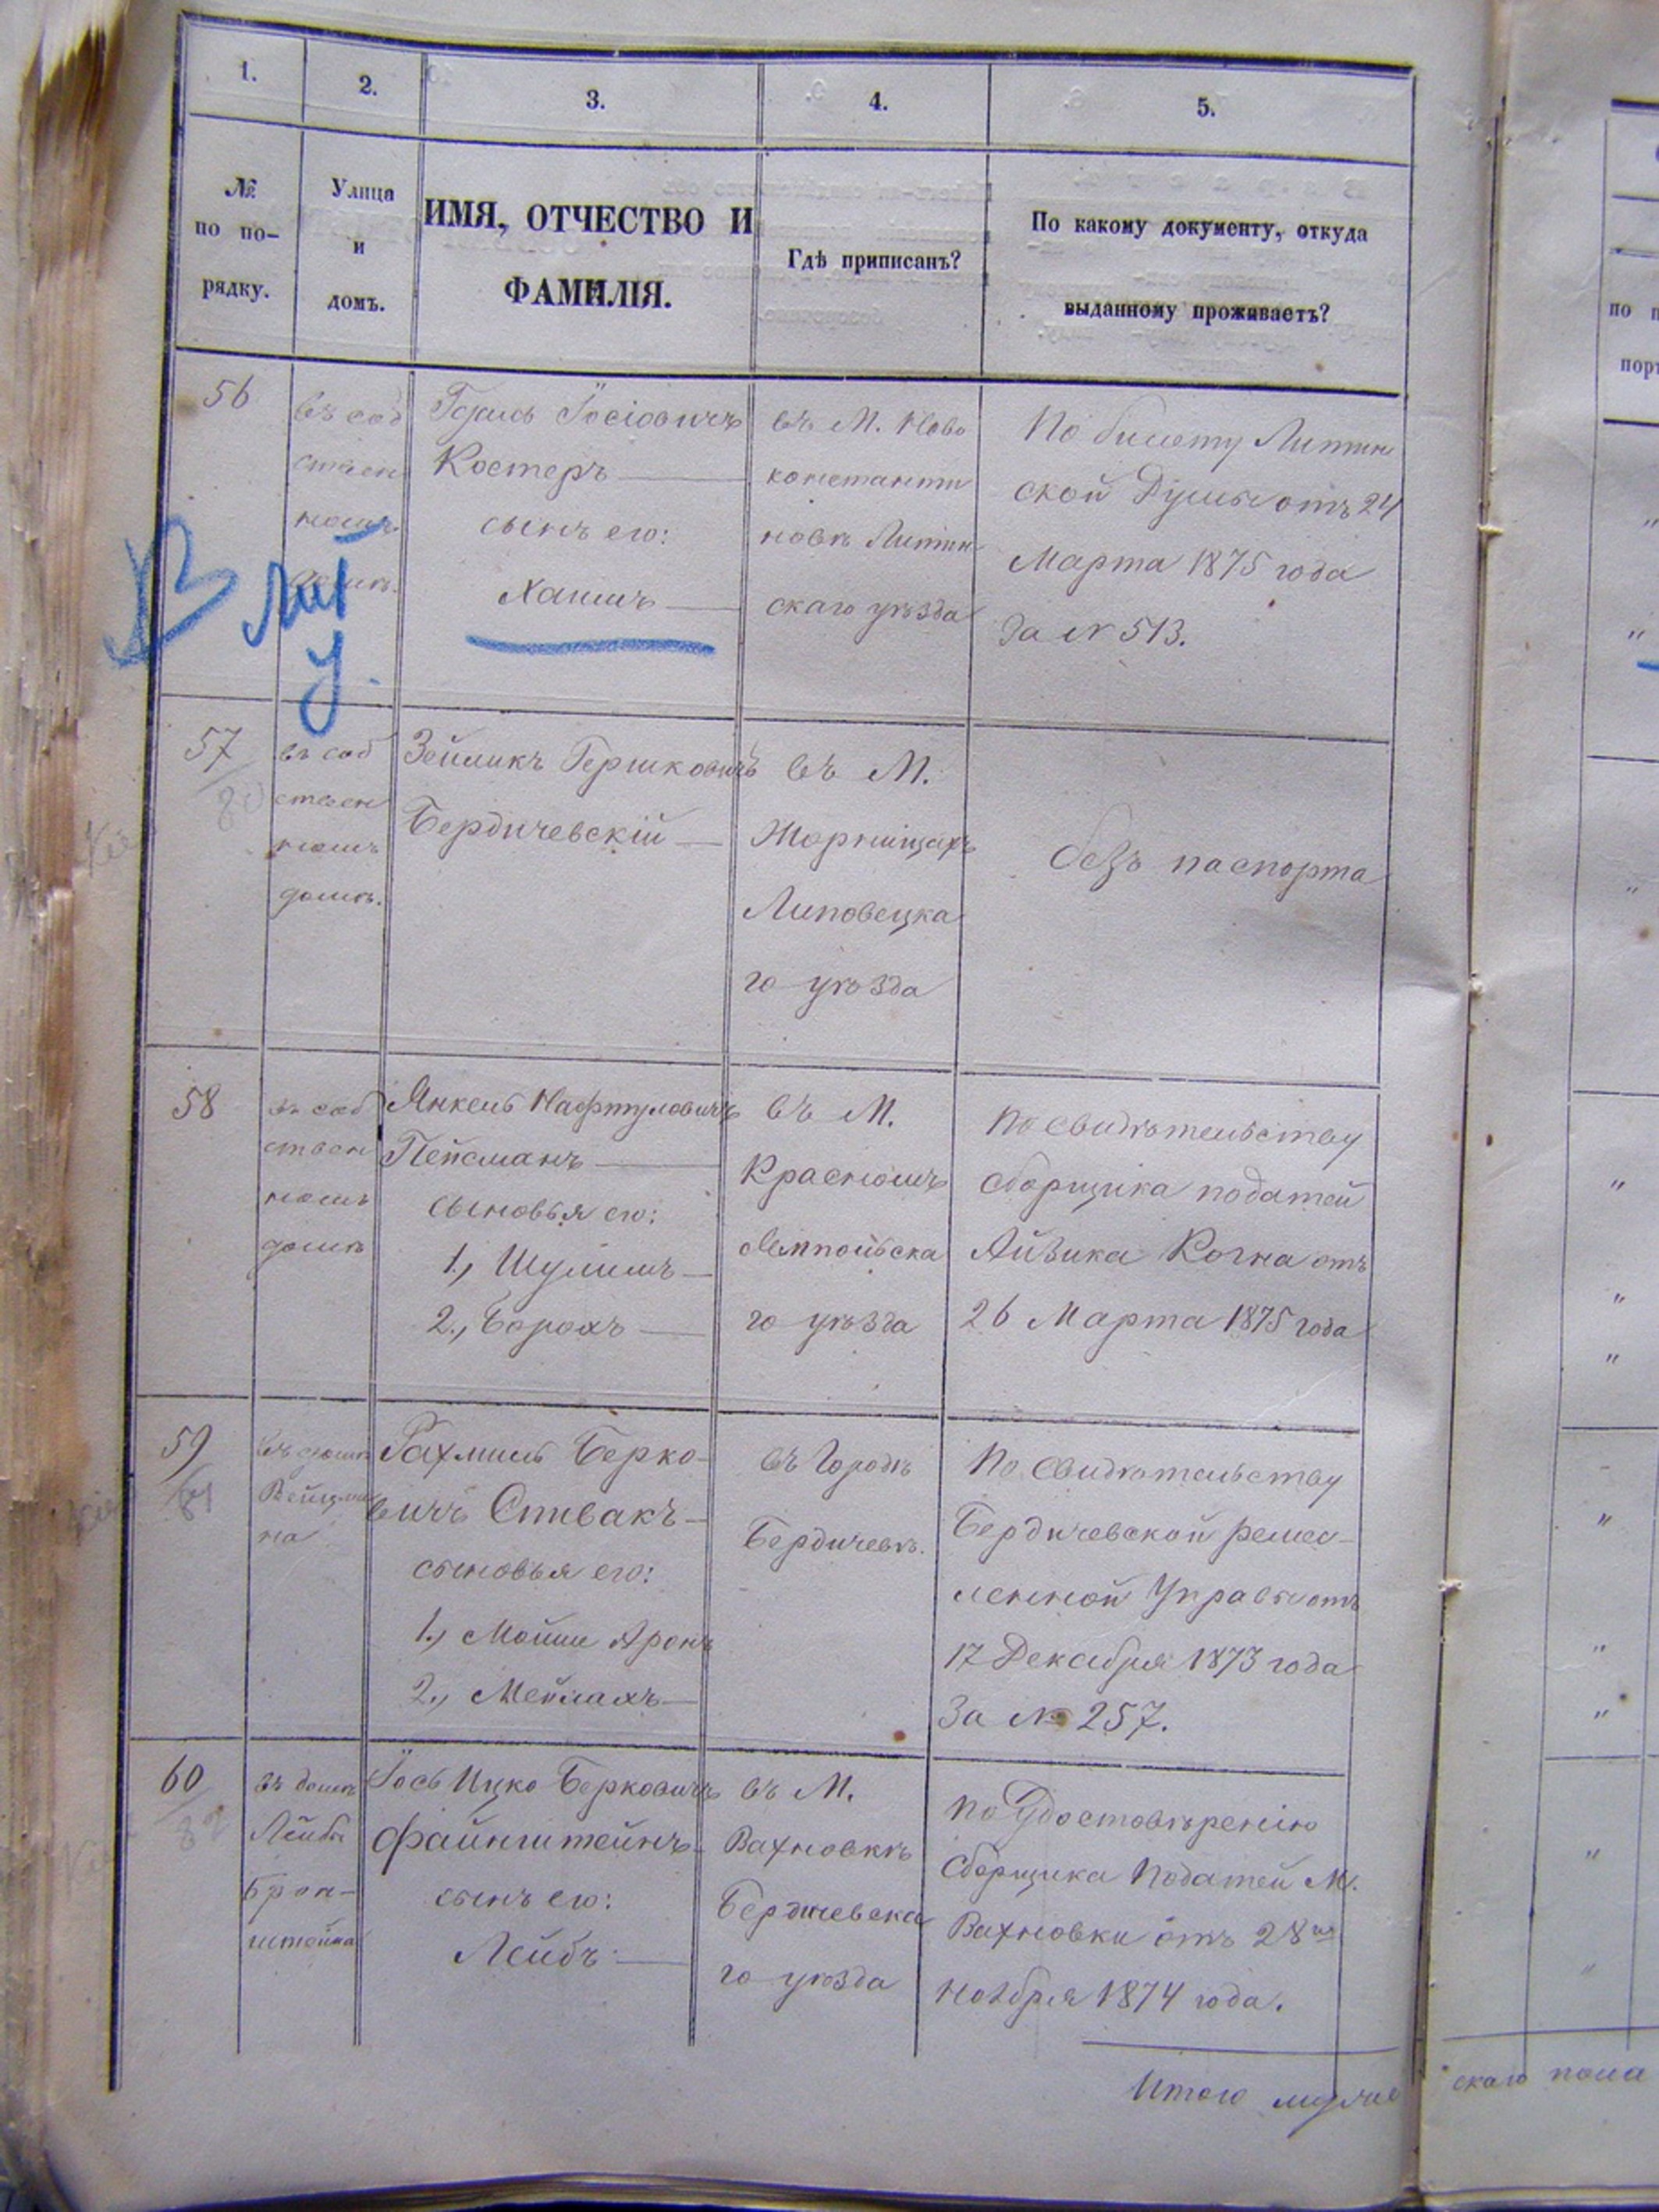 1.
2.
3.
4.
5.
№
по по-
рядку.
Улица
и
домъ.
ИМЯ, ОТЧЕСТВО И
ФАМИЛІЯ.
Гдѣ приписанъ?
По какому документу, откуда
выданному проживаетъ?
56
въ соб
ствен
номъ
домѣ.
Іосіовичъ
Костеръ
сынъ его:
Хаимъ
въ М. Ново
константи
новѣ Литин
скаго уѣзда
По билету Литин
ской Думы отъ 24
Марта 1875 года
За № 513.
57
въ соб
ствен
номъ
домѣ.
Зейликъ Гершковичъ
Бердичевскій
въ М.
Жорнищахъ
Липовецка
го уѣзда
безъ паспорта
58
въ соб
ствен
номъ
домѣ
Янкель Нафтуловичъ
Пейсманъ
сыновья его:
1., Шулимъ
2., Борохъ
въ М.
Красномъ
Ямпольска
го уѣзда
По свидѣтельству
сборщика податей
Айзика Когна отъ
26 Марта 1875 года
59
81
въ домѣ
Вейцма
на
Рахмиль Берко-
вичъ Спивакъ
сыновья его:
1., Мошко Аронъ
2., Мейлахъ
въ Городѣ
Бердичевѣ.
По свидѣтельству
Бердичевской ремес-
ленной Управы отъ
17 Декабря 1873 года
За № 257.
60
82
въ домѣ
Лейбы
Брон-
штейна
Іось Ицко Берковичъ
Файнштейнъ
сынъ его:
Лейбъ
въ М.
Вахновкѣ
Бердичевска
го уѣзда
По Удостовѣренію
Сборщика Податей М.
Вахновки отъ 28го
Ноября 1874 года.
Итого мужс
скаго пола